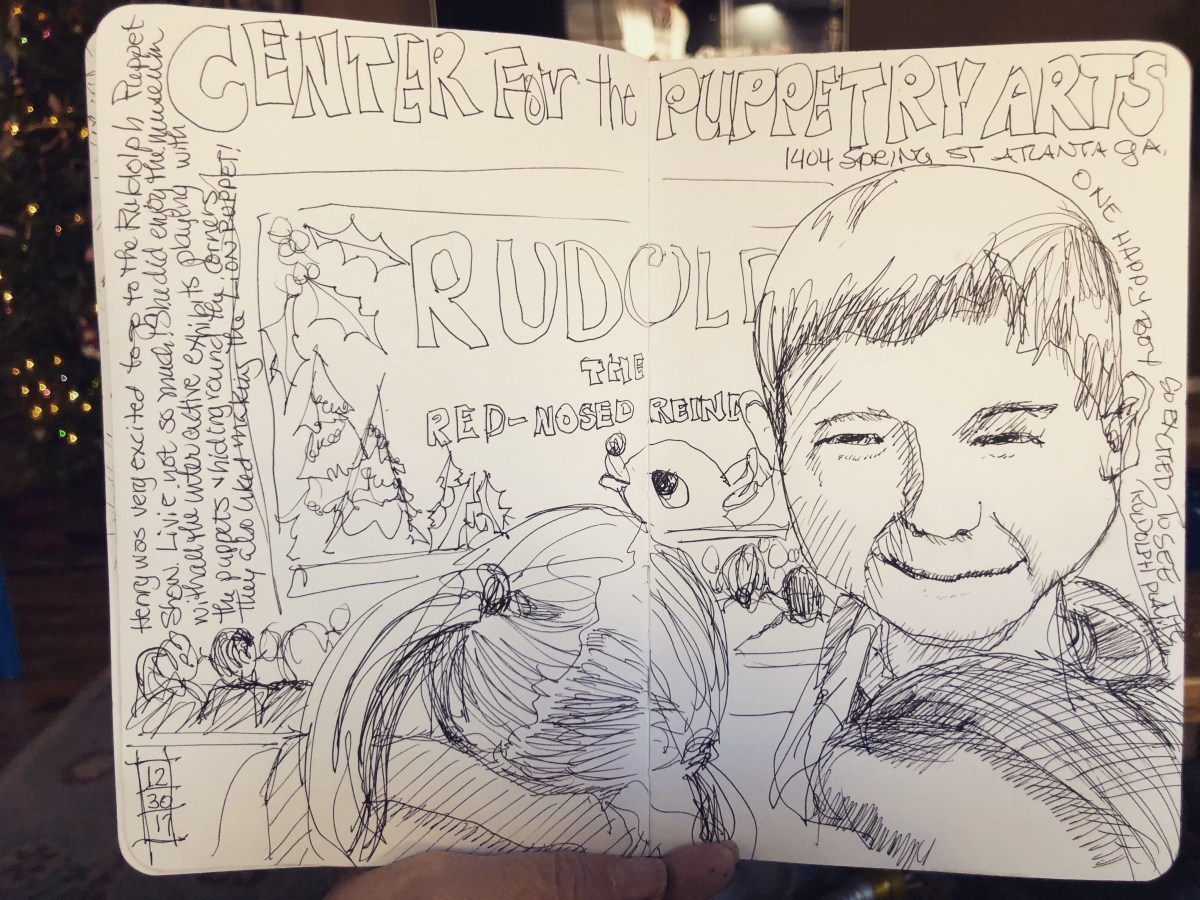 CENTER For the PUPPETRY ARTS
1404 SPRING ST ATLANTA GA.
Henry was very excited to go to the Rudolph Puppet
Show. Livie not so much. She did enjoy the museum
with all the interactive exhibits playing with
the puppets & hiding round the corners!
they also liked making the LION PUPPET!
RUDOL
THE
RED-NOSED REIND
ONE HAPPY BOY
SO EXCITED TO SEE THE
RUDOLPH
12
30
17